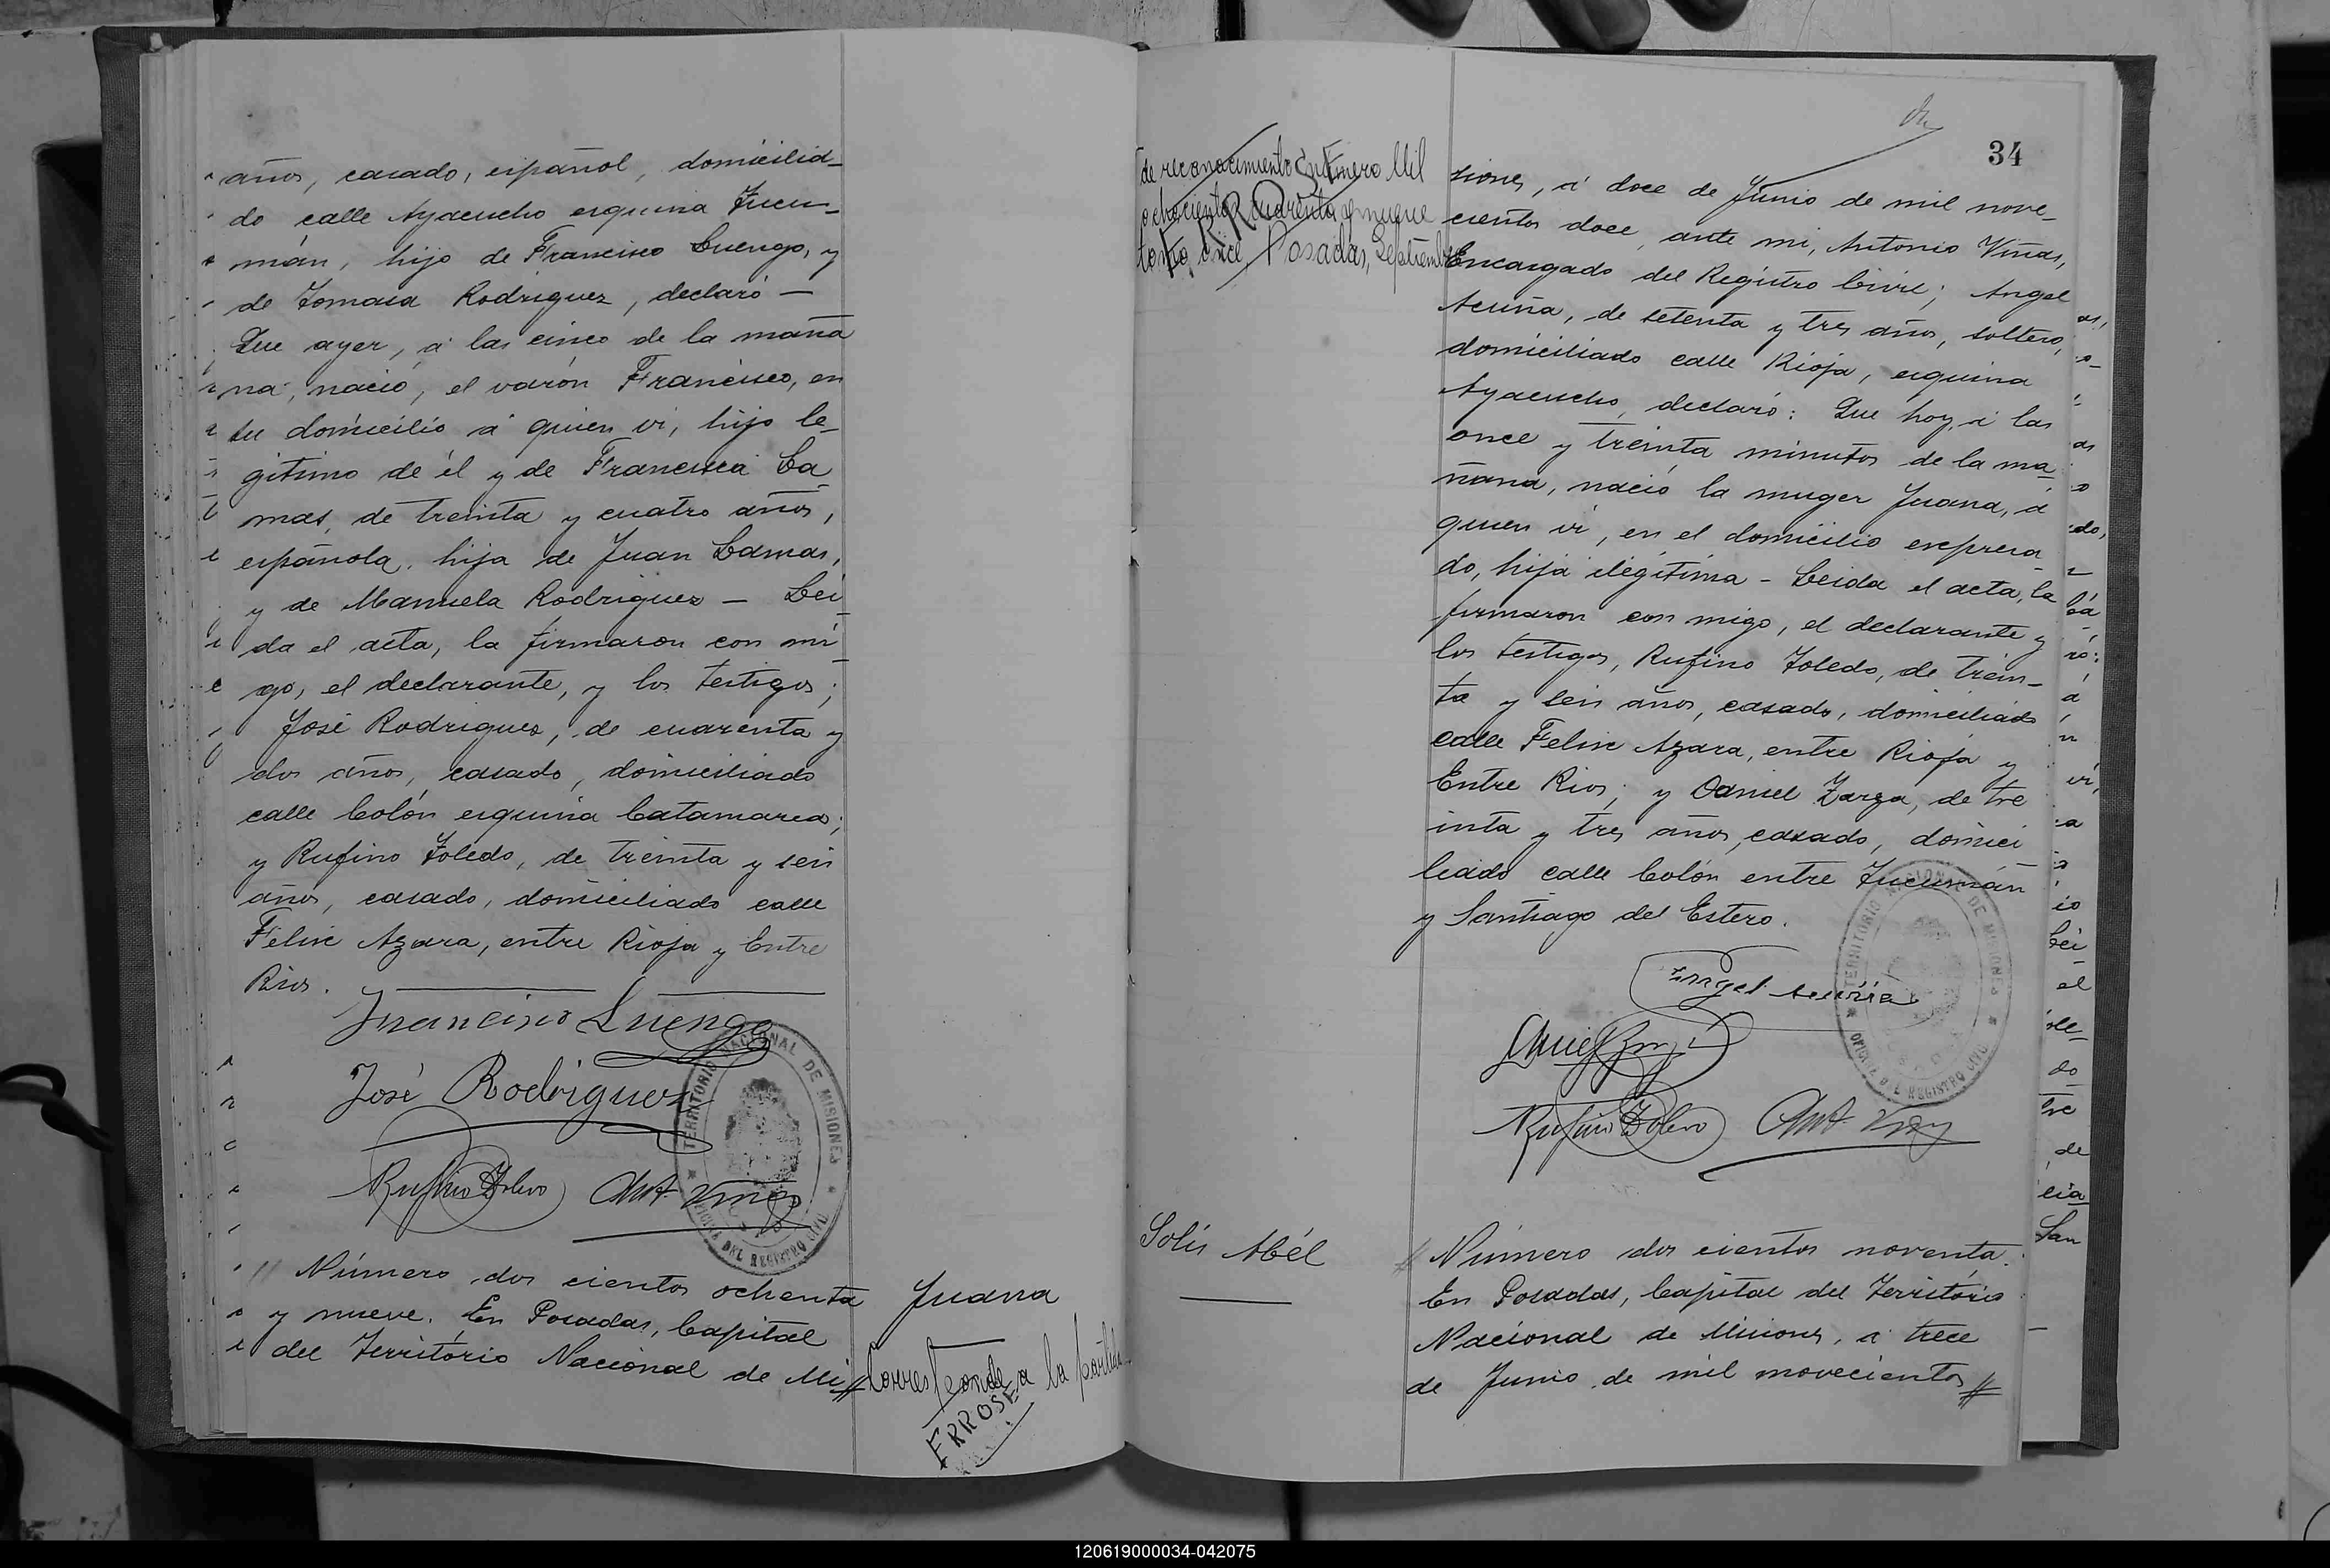 años, casado, español, domicilia-
do calle Ayacucho esquina Tucu-
mán, hijo de Francisco Luengo, y
de Tomasa Rodriguez, declaró —
Que ayer, á las cinco de la maña
na, nació, el varón Francisco, en
su domicilio á quien vi, hijo le-
gitimo de él y de Francisca La-
mas, de treinta y cuatro años,
española, hija de Juan Lamas,
y de Manuela Rodriguez — Lei-
da el acta, la firmaron con mi-
go, el declarante, y los testigos;
José Rodriguez, de cuarenta y
dos años, casado, domiciliado
calle Colón esquina Catamarca;
y Rufino Toledo, de treinta y seis
años, casado, domiciliado calle
Felix Azara, entre Rioja y Entre
Rios.
Francisco Luengo
José Rodriguez
Rufino Toledo Ant. Viñas
TERRITORIO NACIONAL DE MISIONES
OFICINA DEL REGISTRO CIVIL
Número dos cientos ochenta
y nueve. En Posadas, Capital
del Território Nacional de Mi//
Juana
Corresponde a la partida
ERROSE
34
de reconocimiento Número Mil
ochocientos cuarenta y nueve
tomo once, Posadas, Septiembre
siones, á doce de Junio de mil nove-
cientos doce, ante mi, Antonio Viñas,
Encargado del Registro Civil; Angel
Acuña, de setenta y tres años, soltero,
domiciliado calle Rioja, esquina
Ayacucho, declaró: Que hoy, á las
once y treinta minutos de la ma-
ñana, nació la muger Juana, á
quien vi, en el domicilio expresa-
do, hija ilegitima - Leida el acta, la
firmaron con migo, el declarante y
los testigos, Rufino Toledo, de trein-
ta y seis años, casado, domiciliado
calle Felix Azara, entre Rioja y
Entre Rios; y Daniel Zarza, de tre
inta y tres años, casado, domici-
liado calle Colón entre Tucumán
y Santiago del Estero.
Angel Acuña
Rufino Toledo Ant. Viñas
TERRITORIO NACIONAL DE MISIONES
OFICINA DEL REGISTRO CIVIL
Solis Abél
Número dos cientos noventa.
En Posadas, Capital del Território
Nacional de Misiones, á trece
de Junio de mil novecientos//
120619000034-042075